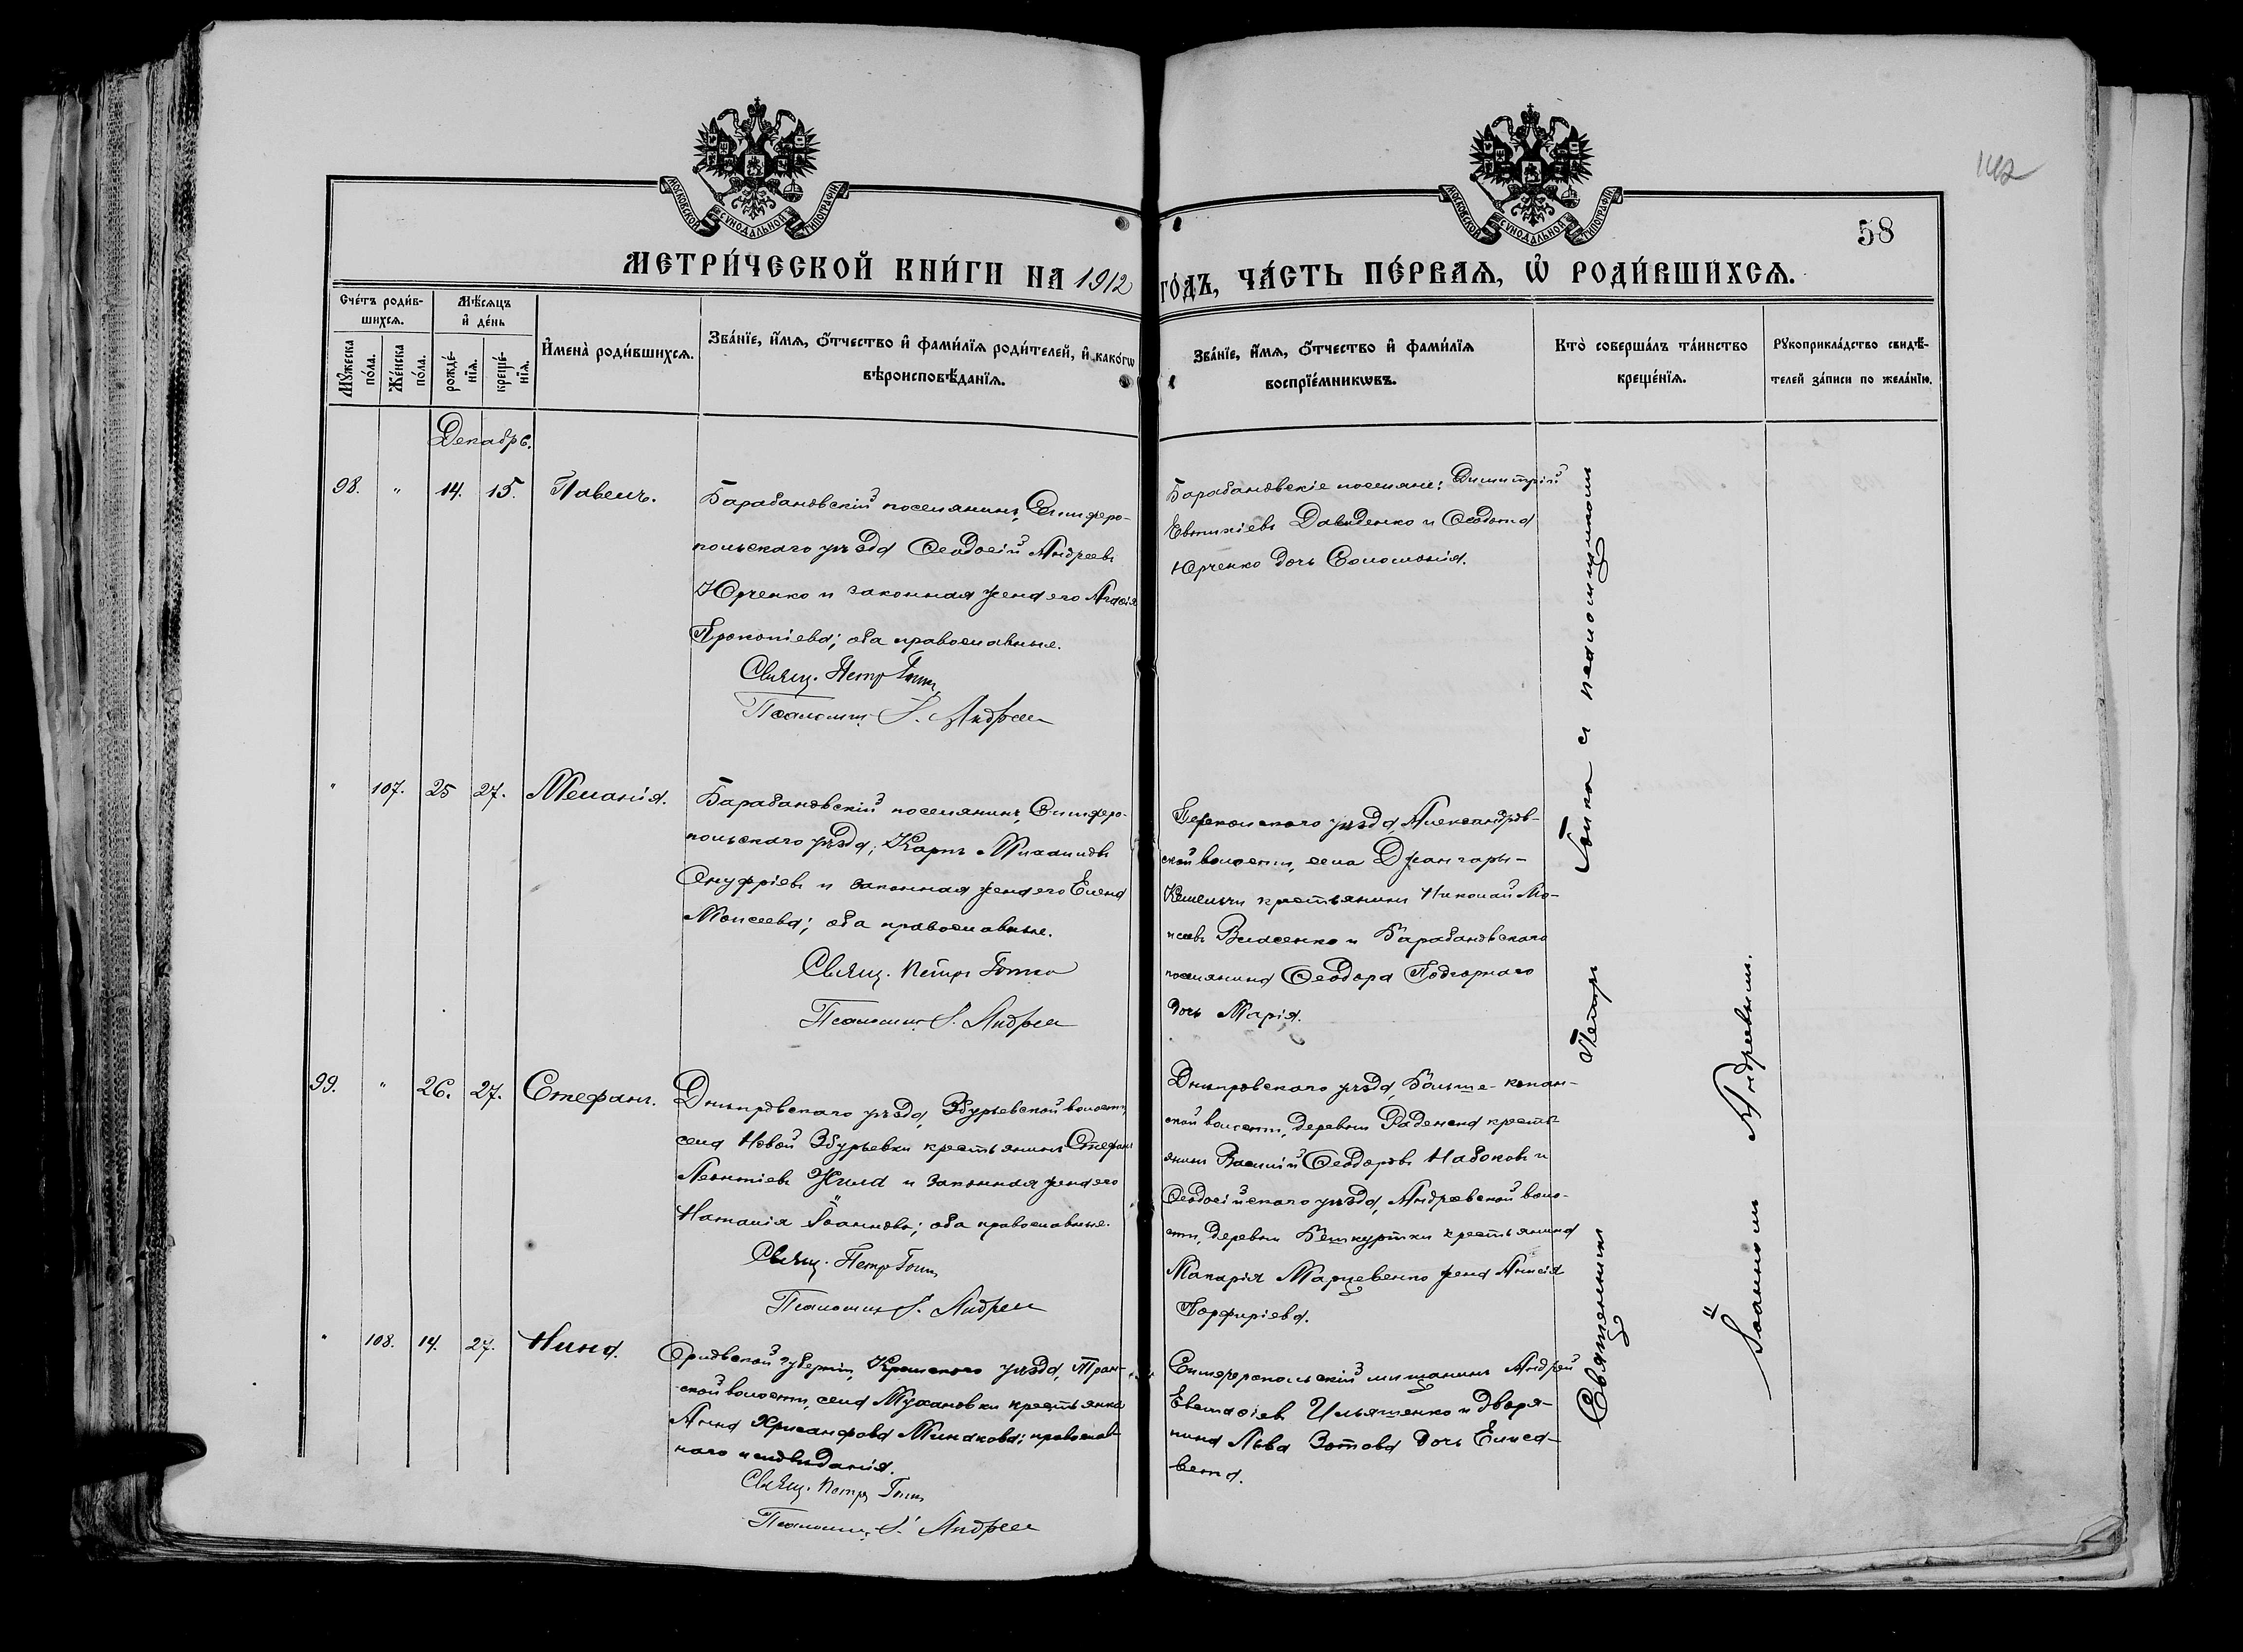 142
58
МОСКОВСКОЙ СѴНОДАЛЬНОЙ ТИПОГРАФІИ
МОСКОВСКОЙ СѴНОДАЛЬНОЙ ТИПОГРАФІИ
МЕТРИ́ЧЕСКОЙ КНИ́ГИ НА 1912 ГО́ДЪ, ЧА́СТЬ ПЕ́РВАѦ, Ѡ҆ РОДИ́ВШИХСѦ.
Сче́тъ роди́в-
шихсѧ.
Мѣ́сѧцъ
и҆ де́нь
Мꙋ́жеска по́ла.
Же́нска по́ла.
рожде́-нїѧ.
креще́-нїѧ.
И҆мена̀ роди́вшихсѧ.
Зва́нїе, и҆́мѧ, ѻ҆́тчество и҆ фами́лїѧ роди́телей, и҆ како́гѡ
вѣроисповѣ́данїѧ.
Зва́нїе, и҆́мѧ, ѻ҆́тчество и҆ фами́лїѧ
воспрїе́мникѡвъ.
Кто̀ соверша́лъ та́инство
креще́нїѧ.
Рꙋкоприкла́дство свидѣ́-
телей за́писи по жела́нїю.
Декабрь.
98. " 14. 15. Павелъ.
Барабановскій поселянинъ, Симферо-
польскаго уѣзда Ѳеодосій Андреевъ
Юрченко и законная жена его Агаѳія
Прокопіева; оба православные.
Свящ. Петръ Гопка
Псаломщ. І. Андреев
Барабановскіе поселяне: Димитрій
Евтихіевъ Давиденко и Ѳеодота
Юрченко дочь Соломонія.
" 107. 25 27. Меланія.
Барабановскій поселянинъ, Симферо-
польскаго уѣзда; Карпъ Михаиловъ
Онуфріевъ и законная жена его Елена
Моисеева; оба православные.
Свящ. Петръ Гопка
Псаломщ. І. Андреев
Перекопскаго уѣзда, Александров-
ской волости, села Джангары-
Кешельчи крестьянинъ Николай Мо-
исеевъ Власенко и Барабановскаго
поселянина Ѳеодора Подгорнаго
дочь Марія.
99. " 26. 27. Стефанъ.
Днѣпровскаго уѣзда, Збурьевской волости,
села Новой Збурьевки крестьянинъ Стефанъ
Леонтіевъ Жила и законная жена его
Наталія Іоаннова; оба православные.
Свящ. Петръ Гопка
Псаломщ. І. Андреев
Днѣпровскаго уѣзда, Больше-копан-
ской волости, деревни Раденска кресть-
янинъ Василій Ѳеодоровъ Набоковъ и
Ѳеодосійскаго уѣзда, Андреевской воло-
сти, деревни Бешкуртки крестьянина
Макарія Марцевенко жена Анисія
Порфиріева.
" 108. 14. 27. Нина.
Орловской губерніи, Кромскаго уѣзда,
ской волости, села Мухановки крестьянка
Анна Хрисанфова Минакова; православ-
наго исповѣданія.
Свящ. Петръ Гопка
Псаломщ. І. Андреев
Симферопольскій мѣщанинъ Андрей
Евстафіевъ Ильяшенко и дворя-
нина Льва Зотова дочь Елиса-
вета.
Священникъ Петръ Гопка съ псаломщикомъ
Іоанномъ Андреевымъ.